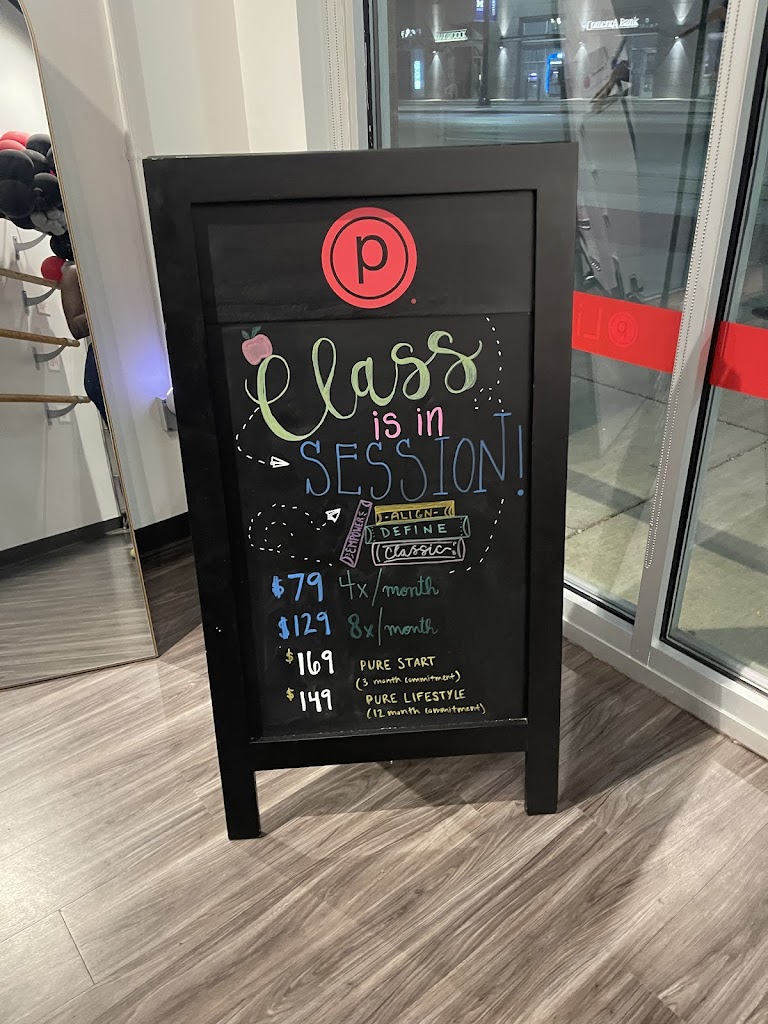 Comerica Bank
p
Class
is in
SESSION!
EMPOWER
-ALIGN-
DEFINE
Classic
$79 4x/month
$129 8x/month
$169 PURE START
(3 month commitment)
$149 PURE LIFESTYLE
(12 month commitment)